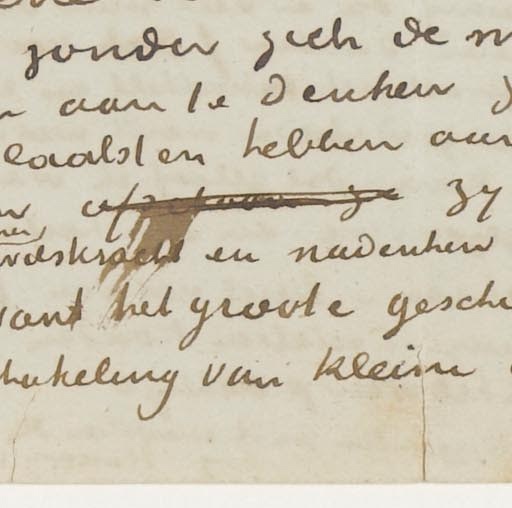 zonder zich de
aan te denken
laatsten hebben aan
zy
en nadenken
want het groote gesch
schakeling van kleine